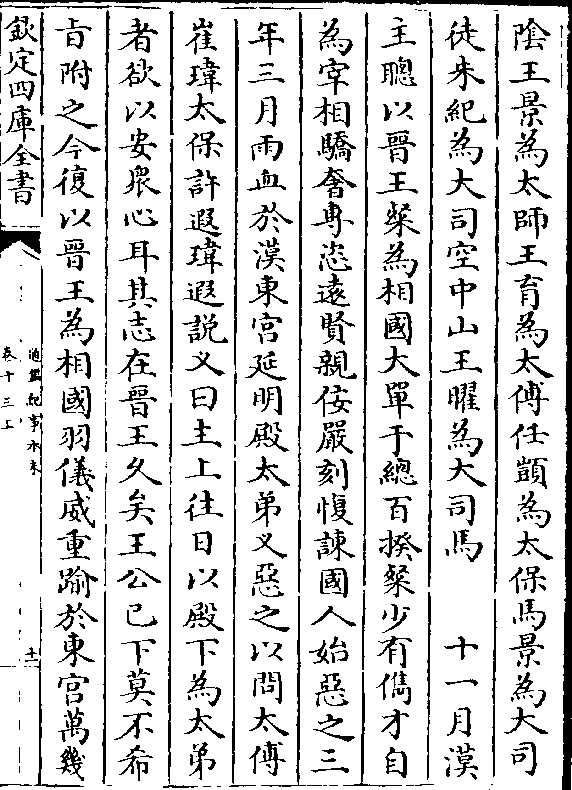 隂王景為太師王育為太傅任顗為太保馬景為大司
徒朱紀為大司空中山王曜為大司馬　十一月漢
主聰以晉王粲為相國大單于總百揆粲少有儁才自
為宰相驕奢専恣遠賢親佞嚴刻愎諫國人始惡之三
年三月雨血於漢東宮延明殿太弟乂惡之以問太傅
崔瑋太保許遐瑋遐説乂曰主上往日以殿下為太弟
者欲以安衆心耳其志在晉王久矣王公已下莫不希
㫖附之今復以晉王為相國羽儀威重踰於東宮萬幾
欽定四庫全書
通鑑紀事本末
卷十三上
十二